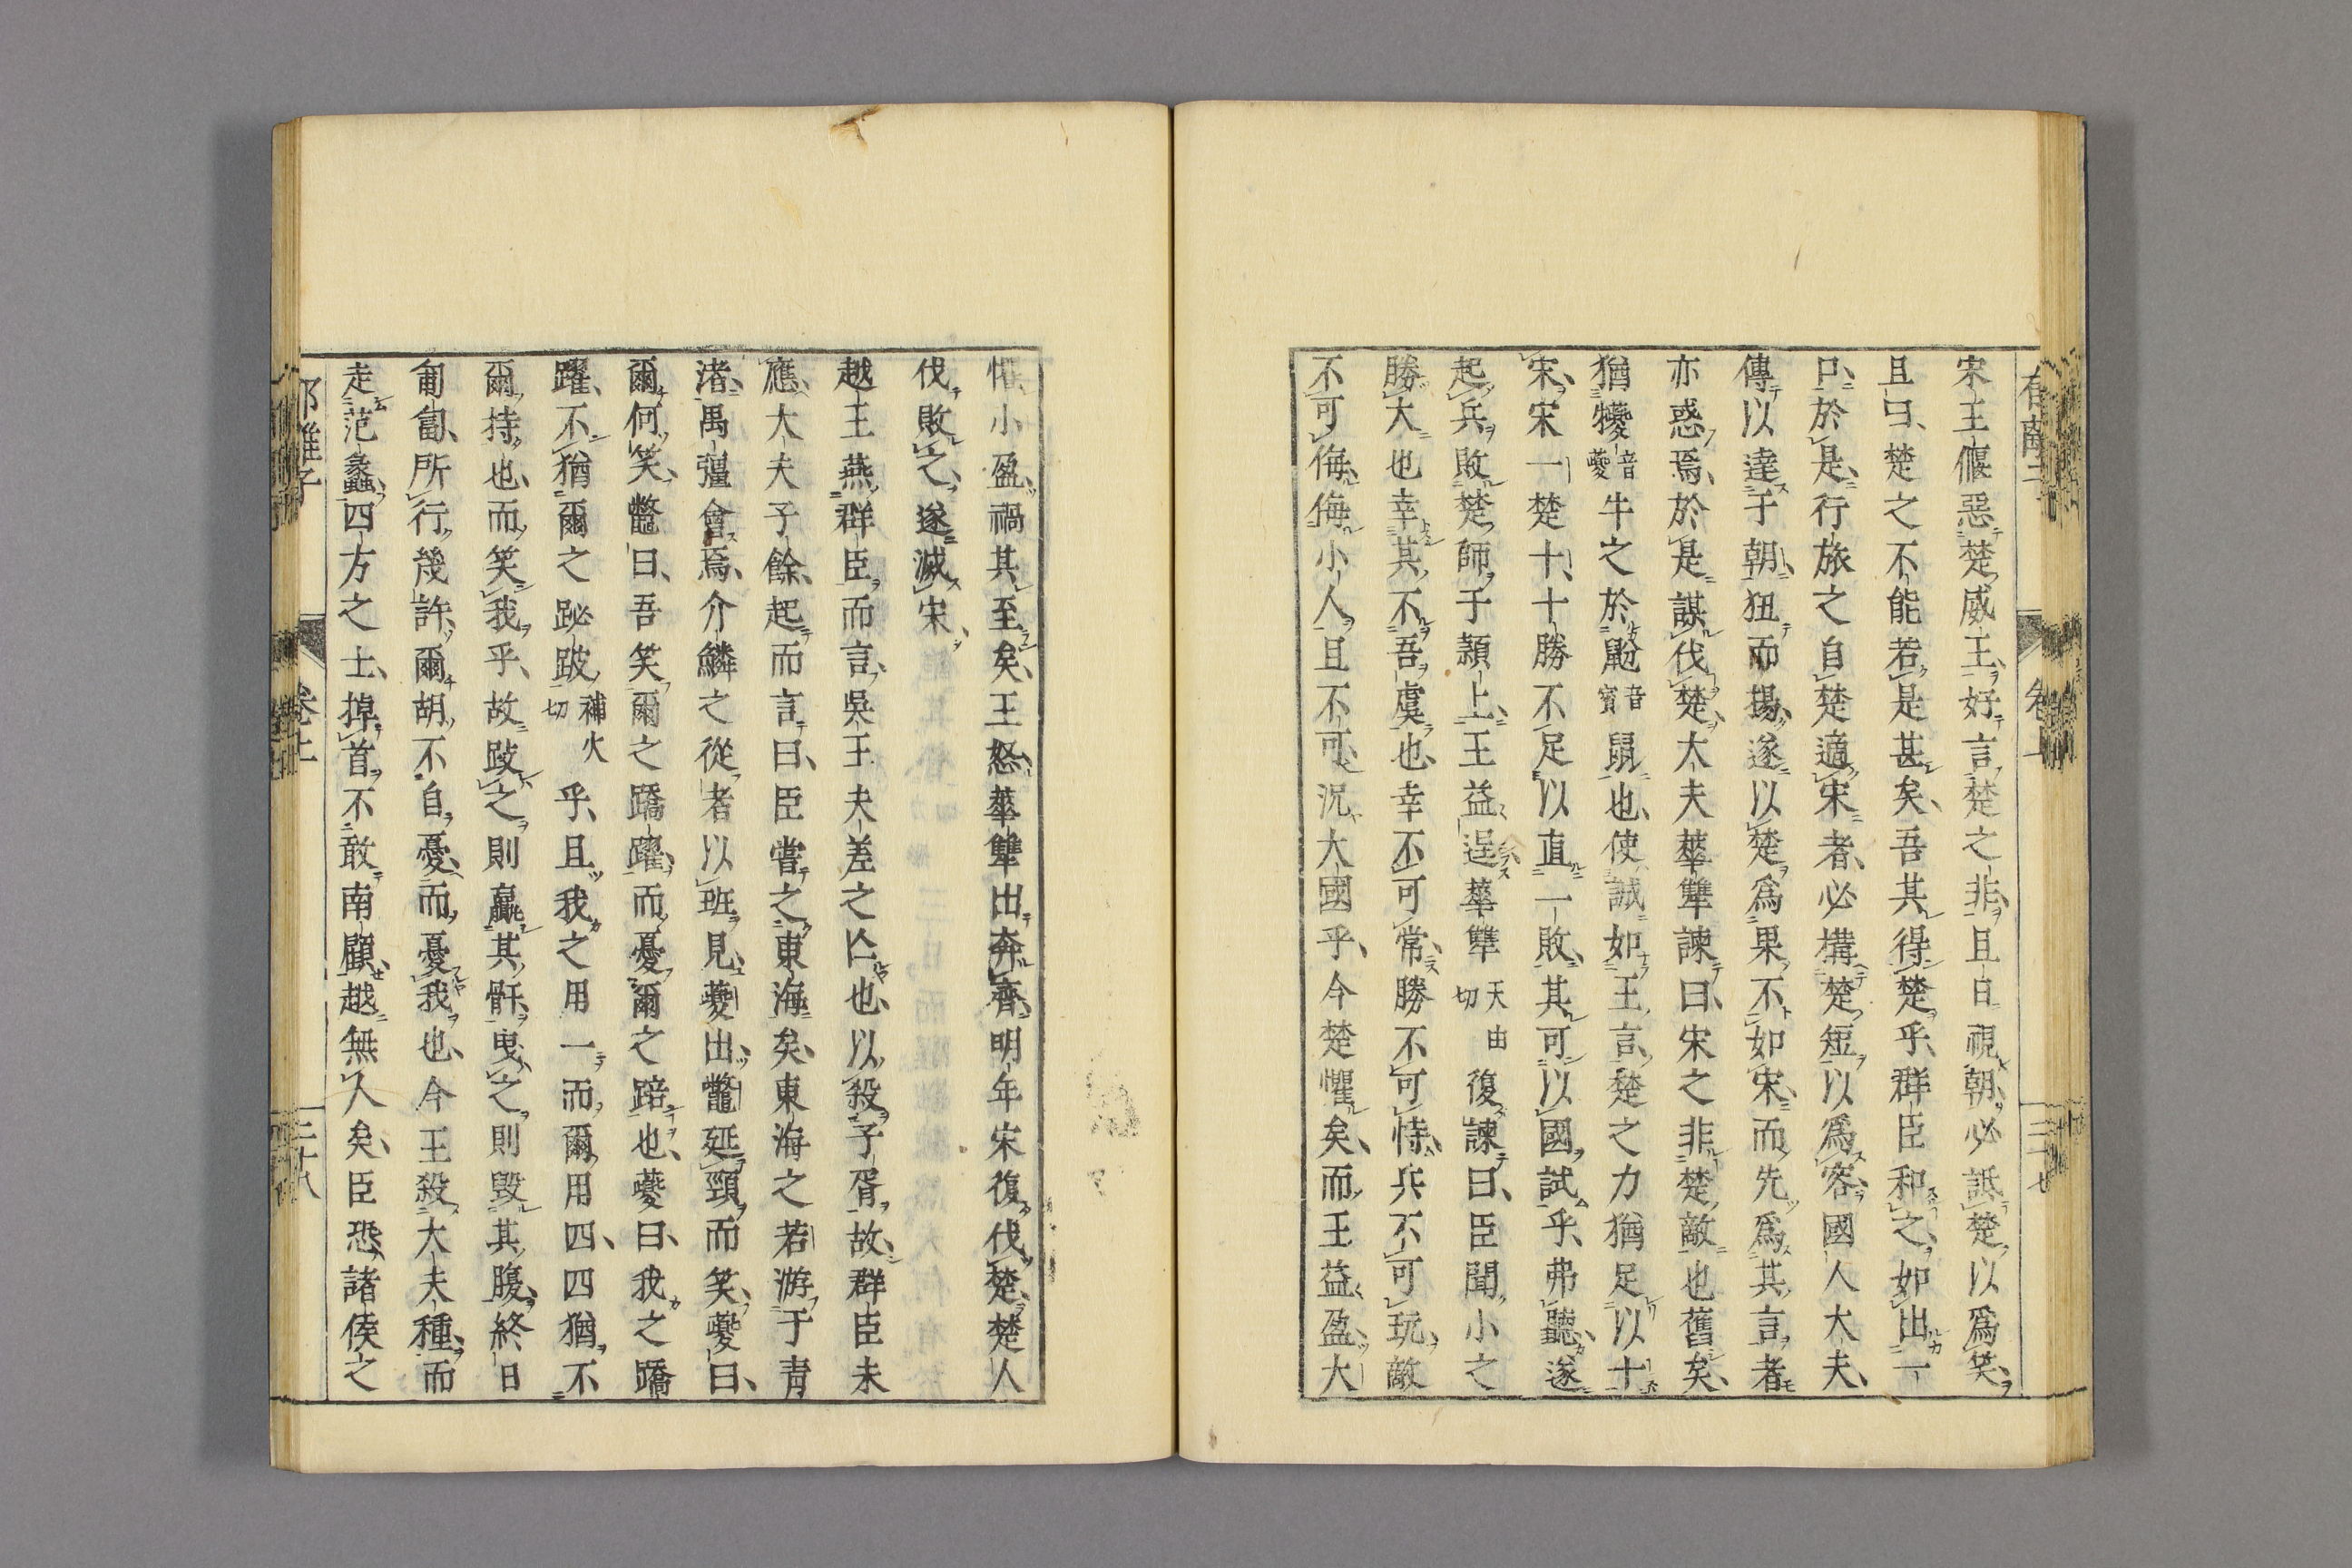 宋王偃惡楚威王好言楚之非且日視朝必詆楚以爲笑
且曰楚之不能若是甚矣吾其得楚乎群臣和之如出一
口於是行旅之自楚適宋者必構楚短以爲容國人大夫
傳以達于朝狃而揚遂以楚爲果不如宋而先爲其言者
亦惑焉於是謀伐楚大夫華犨諫曰宋之非楚敵也舊矣
猶犪音夔牛之於鼢音賓鼠也使誠如王言楚之力猶足以十
宋宋一楚十十勝不足以直一敗其可以國試乎弗聽遂
起兵敗楚師于潁上王益逞華犨天由切復諫曰臣聞小之
勝大也幸其不吾虞也幸不可常勝不可恃兵不可玩敵
不可侮侮小人且不可況大國乎今楚懼矣而王益盈大
懼小盈禍其至矣王怒華犨出奔齊明年宋復伐楚楚人
伐敗之遂滅宋
越王燕群臣而言吳王夫差之亾也以殺子胥故群臣未
應大夫子餘起而言曰臣嘗之東海矣東海之若游于青
渚禺彊會焉介鱗之從者以班見夔出鼈延頸而笑夔曰
爾何笑鼈曰吾笑爾之蹻躍而憂爾之踣也夔曰我之蹻
躍不猶爾之跛乎且我之用一而爾用四四猶不
爾持也而笑我乎故跂之則羸其骭曳之則毀其腹終日
匍匐所行幾許爾胡不自憂而憂我也今王殺大夫種而
走范蠡四方之士掉首不敢南顧越無人矣臣恐諸侯之
卷上
三十八